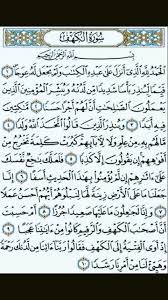 سُورَةُ الكَهْفِ
بِسْمِ اللَّهِ الرَّحْمَٰنِ الرَّحِيمِ
ٱلْحَمْدُ لِلَّهِ ٱلَّذِىٓ أَنزَلَ عَلَىٰ عَبْدِهِ ٱلْكِتَٰبَ وَلَمْ يَجْعَل لَّهُۥ عِوَجَا ۜ ١
قَيِّمًا لِّيُنذِرَ بَأْسًا شَدِيدًا مِّن لَّدُنْهُ وَيُبَشِّرَ ٱلْمُؤْمِنِينَ
ٱلَّذِينَ يَعْمَلُونَ ٱلصَّٰلِحَٰتِ أَنَّ لَهُمْ أَجْرًا حَسَنًا ٢ مَّٰكِثِينَ
فِيهِ أَبَدًا ٣ وَيُنذِرَ ٱلَّذِينَ قَالُوا۟ ٱتَّخَذَ ٱللَّهُ وَلَدًا ٤
مَّا لَهُم بِهِۦ مِنْ عِلْمٍ وَلَا لِـَٔابَآئِهِمْ كَبُرَتْ كَلِمَةً تَخْرُجُ مِنْ
أَفْوَٰهِهِمْ إِن يَقُولُونَ إِلَّا كَذِبًا ٥ فَلَعَلَّكَ بَٰخِعٌ نَّفْسَكَ
عَلَىٰٓ ءَاثَٰرِهِمْ إِن لَّمْ يُؤْمِنُوا۟ بِهَٰذَا ٱلْحَدِيثِ أَسَفًا ٦ إِنَّا
جَعَلْنَا مَا عَلَى ٱلْأَرْضِ زِينَةً لَّهَا لِنَبْلُوَهُمْ أَيُّهُمْ أَحْسَنُ عَمَلًا
٧ وَإِنَّا لَجَٰعِلُونَ مَا عَلَيْهَا صَعِيدًا جُرُزًا ٨ أَمْ حَسِبْتَ
أَنَّ أَصْحَٰبَ ٱلْكَهْفِ وَٱلرَّقِيمِ كَانُوا۟ مِنْ ءَايَٰتِنَا عَجَبًا ٩
إِذْ أَوَى ٱلْفِتْيَةُ إِلَى ٱلْكَهْفِ فَقَالُوا۟ رَبَّنَآ ءَاتِنَا مِن لَّدُنكَ رَحْمَةً
وَهَيِّئْ لَنَا مِنْ أَمْرِنَا رَشَدًا ١٠